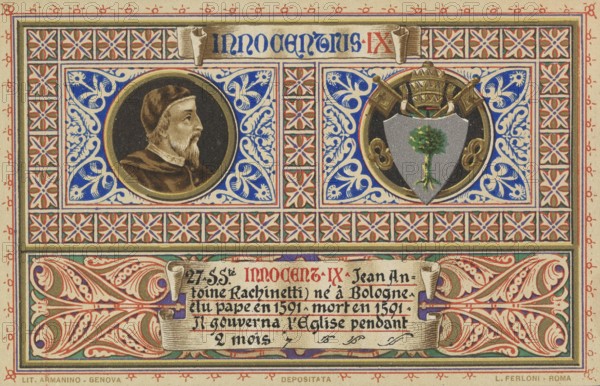 INNOCENTIUS·IX
27·S.Sté INNOCENT·IX·Jean An=
toine Rachinetti) né à Bologne·
élu pape en 1591·mort en 1591·
Il gouverna l'Eglise pendant
2 mois
LIT. ARMANINO - GENOVA DEPOSITATA L. FERLONI - ROMA